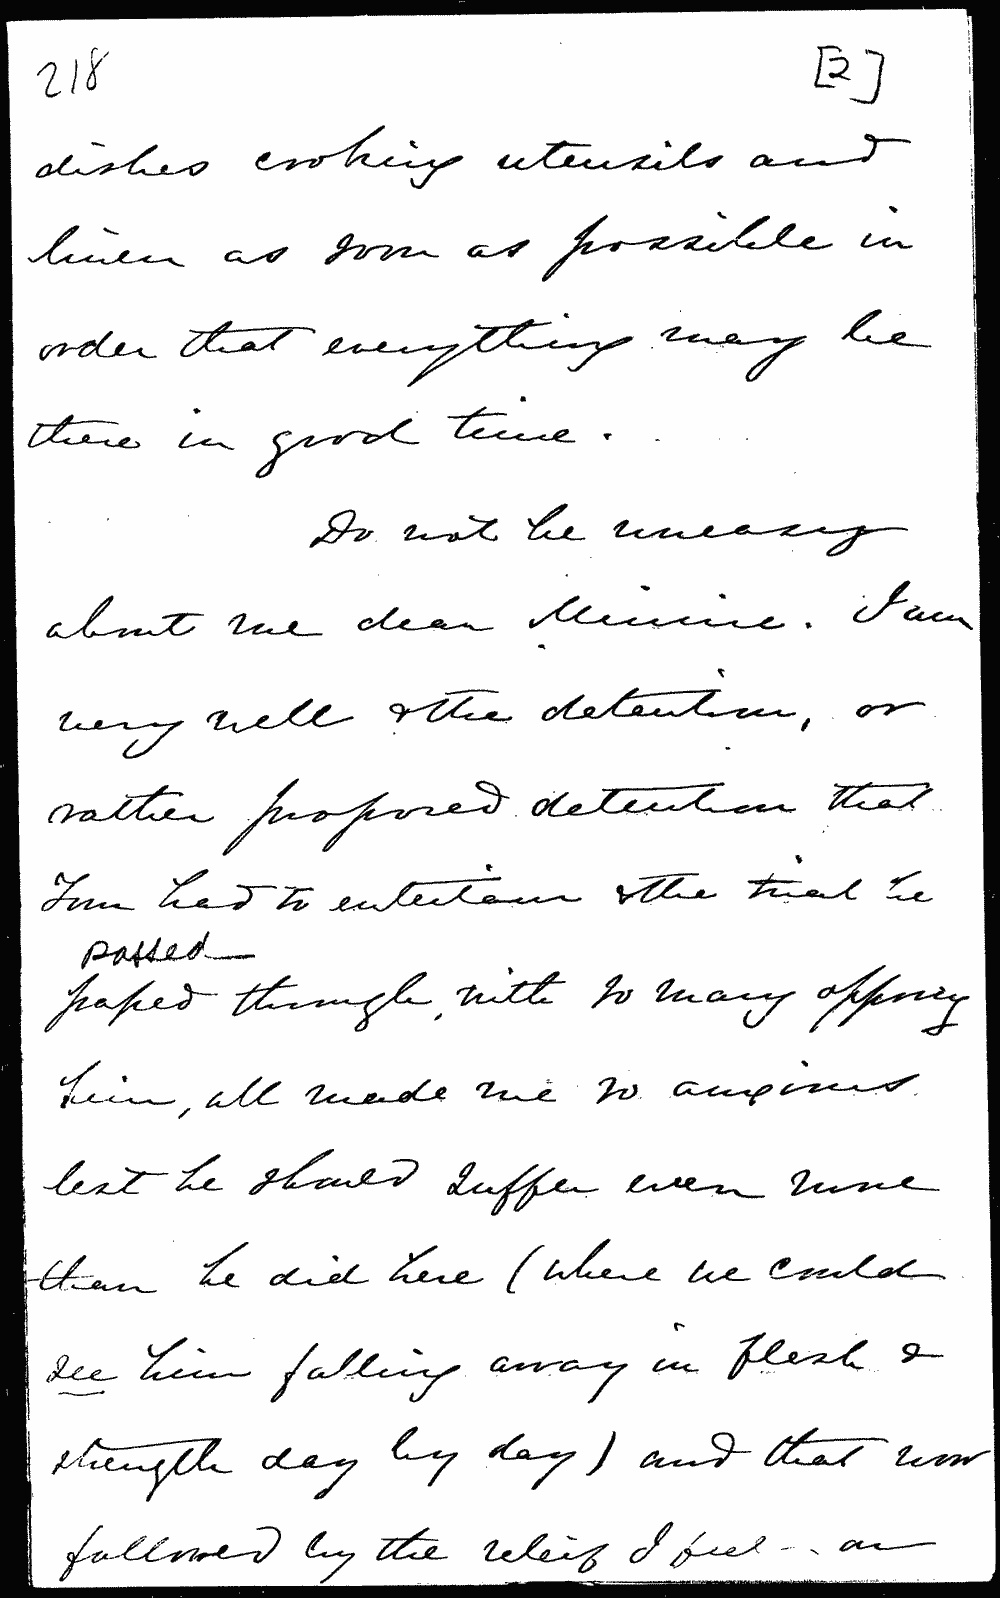 218 [2]
dishes cooking utensils and
linen as soon as possible in
order that everything may be
there in good time.
Do not be uneasy
about me dear Minnie. I am
very well & the detention, or
rather proposed detention that
Tom had to entertain & the trial he
passed
passed through, with so many opposing
him, all made me so anxious
lest he should suffer even more
than he did here (where we could
see him falling away in flesh &
strength day by day) and that now
followed by the releif I feel -- an